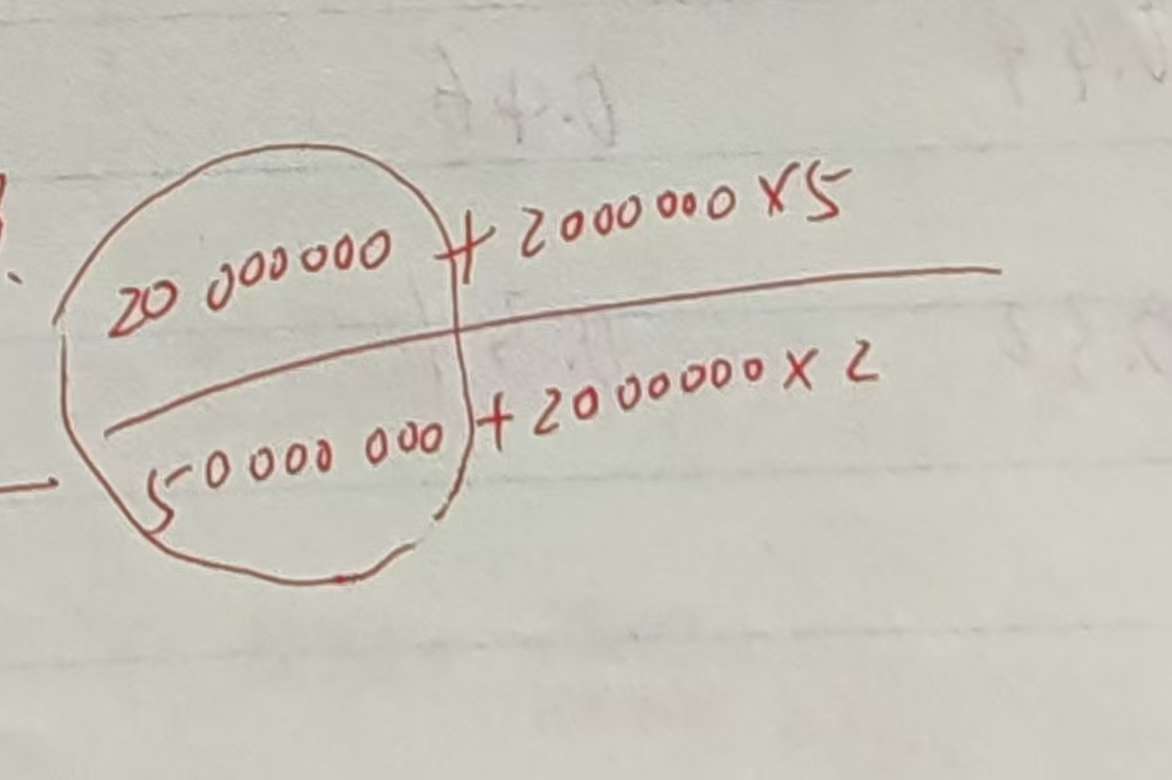 20 000000 + 2000000 x 5
50000 000 + 2000000 x 2